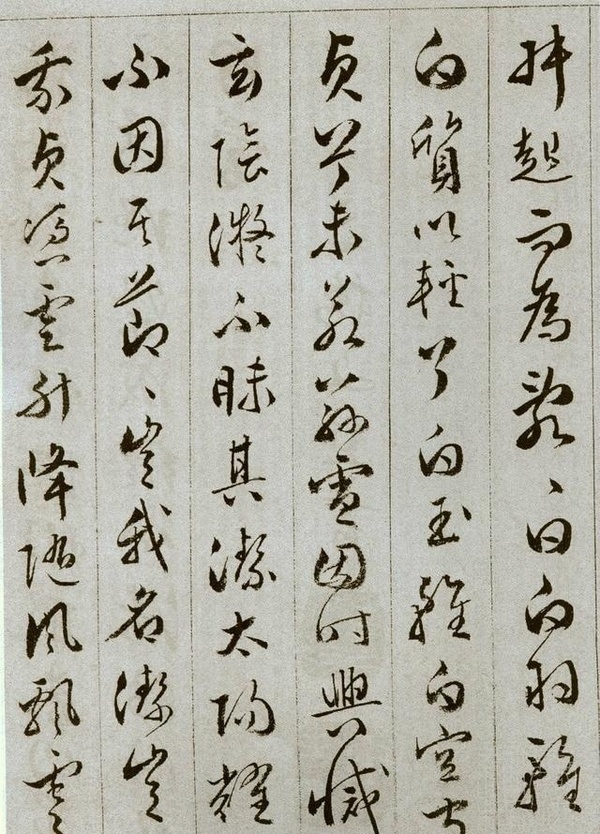 抃起而為亂、曰白羽雖
白質以輕兮白玉雖白空守
貞兮未若茲雪因時興滅
玄陰凝不昧其潔太陽耀
不因其節、豈我名潔豈
我貞憑雲升降隨風飄零